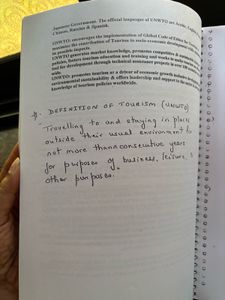 Japanese Government. The official languages of UNWTO are Arabic,
Chinese, Russian & Spanish.
UNWTO: encourages the implementation of Global Code of Ethics for Tourism
maximize the contribution of Tourism to socio-economic development
negative impacts
UNWTO generates market knowledge, promotes competitive
policies, fosters tourism education and training and works to make
tool for development through technical assistance projects in over
world.
UNWTO: promotes tourism as a driver of economic growth inclusive
environmental sustainability & offers leadership and support to the
knowledge of tourism policies worldwide.
DEFINITION OF TOURISM (UNWTO)
Travelling to and staying in places
outside their usual environment for
not more than a consecutive years
for purposes of business, leisure &
other purposes.